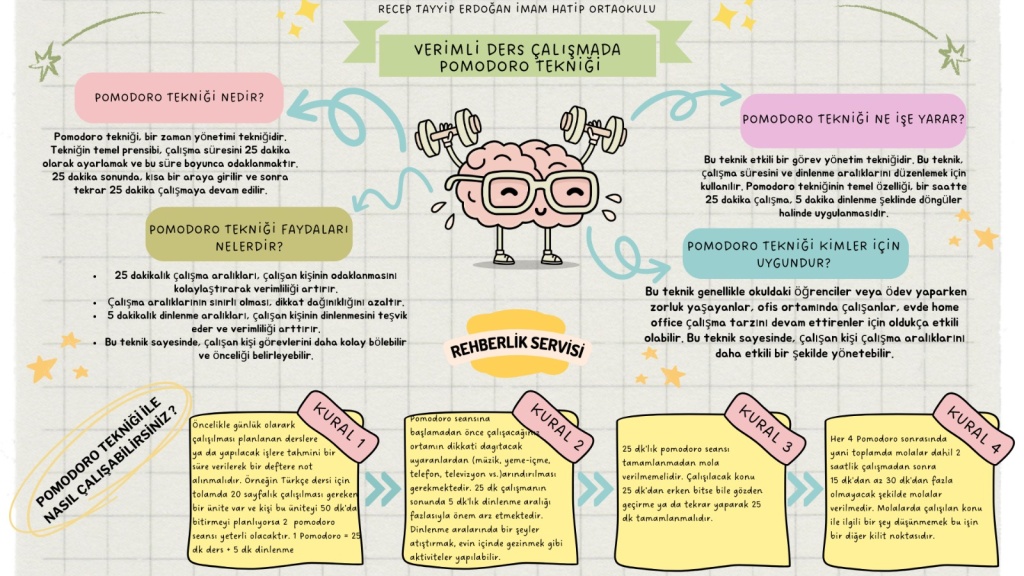 RECEP TAYYİP ERDOĞAN İMAM HATİP ORTAOKULU
VERİMLİ DERS ÇALIŞMADA
POMODORO TEKNİĞİ
POMODORO TEKNİĞİ NEDİR?
Pomodoro tekniği, bir zaman yönetimi tekniğidir.
Tekniğin temel prensibi, çalışma süresini 25 dakika
olarak ayarlamak ve bu süre boyunca odaklanmaktır.
25 dakika sonunda, kısa bir araya girilir ve sonra
tekrar 25 dakika çalışmaya devam edilir.
POMODORO TEKNİĞİ NE İŞE YARAR?
Bu teknik etkili bir görev yönetim tekniğidir. Bu teknik,
çalışma süresini ve dinlenme aralıklarını düzenlemek için
kullanılır. Pomodoro tekniğinin temel özelliği, bir saatte
25 dakika çalışma, 5 dakika dinlenme şeklinde döngüler
halinde uygulanmasıdır.
POMODORO TEKNİĞİ FAYDALARI
NELERDİR?
• 25 dakikalık çalışma aralıkları, çalışan kişinin odaklanmasını
kolaylaştırarak verimliliği artırır.
• Çalışma aralıklarının sınırlı olması, dikkat dağınıklığını azaltır.
• 5 dakikalık dinlenme aralıkları, çalışan kişinin dinlenmesini teşvik
eder ve verimliliği arttırır.
• Bu teknik sayesinde, çalışan kişi görevlerini daha kolay bölebilir
ve önceliği belirleyebilir.
POMODORO TEKNİĞİ KİMLER İÇİN
UYGUNDUR?
Bu teknik genellikle okuldaki öğrenciler veya ödev yaparken
zorluk yaşayanlar, ofis ortamında çalışanlar, evde home
office çalışma tarzını devam ettirenler için oldukça etkili
olabilir. Bu teknik sayesinde, çalışan kişi çalışma aralıklarını
daha etkili bir şekilde yönetebilir.
REHBERLİK SERVİSİ
POMODORO TEKNİĞİ İLE
NASIL ÇALIŞABİLİRSİNİZ ?
KURAL 1
Öncelikle günlük olarark
çalışılması planlanan derslere
ya da yapılacak işlere tahmini bir
süre verilerek bir deftere not
alınmalıdır. Örneğin Türkçe dersi için
tolamda 20 sayfalık çalışılması gereken
bir ünite var ve kişi bu üniteyi 50 dk'da
bitirmeyi planlıyorsa 2 pomodoro
seansı yeterli olacaktır. 1 Pomodoro = 25
dk ders + 5 dk dinlenme
KURAL 2
Pomodoro seansına
başlamadan önce çalışacağınız
ortamın dikkati dağıtacak
uyaranlardan (müzik, yeme-içme,
telefon, televizyon vs.)arındırılması
gerekmektedir. 25 dk çalışmanın
sonunda 5 dk'lık dinlenme aralığı
fazlasıyla önem arz etmektedir.
Dinlenme aralarında bir şeyler
atıştırmak, evin içinde gezinmek gibi
aktiviteler yapılabilir.
KURAL 3
25 dk'lık pomodoro seansı
tamamlanmadan mola
verilmemelidir. Çalışılacak konu
25 dk'dan erken bitse bile gözden
geçirme ya da tekrar yaparak 25
dk tamamlanmalıdır.
KURAL 4
Her 4 Pomodoro sonrasında
yani toplamda molalar dahil 2
saatlik çalışmadan sonra
15 dk'dan az 30 dk'dan fazla
olmayacak şekilde molalar
verilmedir. Molalarda çalışılan konu
ile ilgili bir şey düşünmemek bu işin
bir diğer kilit noktasıdır.